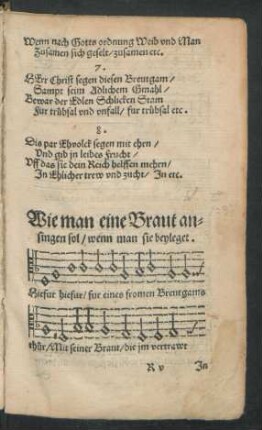 Wenn nach Gotts ordnung Weib vnd Man
Zusamen sich geselt/zusamen etc.
7.
HErr Christ segen diesen Breutgam/
Sampt seim Adlichem Gmahl/
Bewar der Edlen Schlicken Stam
Fur trübsal vnd vnfall/ fur trübsal etc.
8.
Dis par Ehvolck segen mit ehrn/
Vnd gib jn leibes frucht/
Vff das sie dein Reich helffen mehrn/
In Ehlicher trew vnd zucht/ In etc.
Wie man eine Braut an-
singen sol/ wenn man sie beyleget.
Hiefur hiefur/ fur eines fromen Breutgams
thür/ Mit seiner Braut/ die jm vertrawt
R v
In